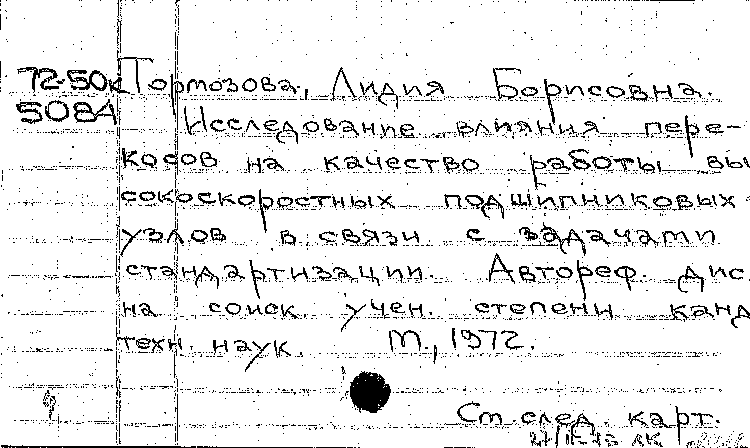 72-50к Тормозова, Лидия Борисовна.
508А Исследование влияния пере-
косов на качество работы вы
сокоскоростных подшипниковых
узлов в связи с задачами
стандартизации. Автореф. дис.
на соиск. учен. степени канд
техн. наук. М., 1972.
См. след. карт.